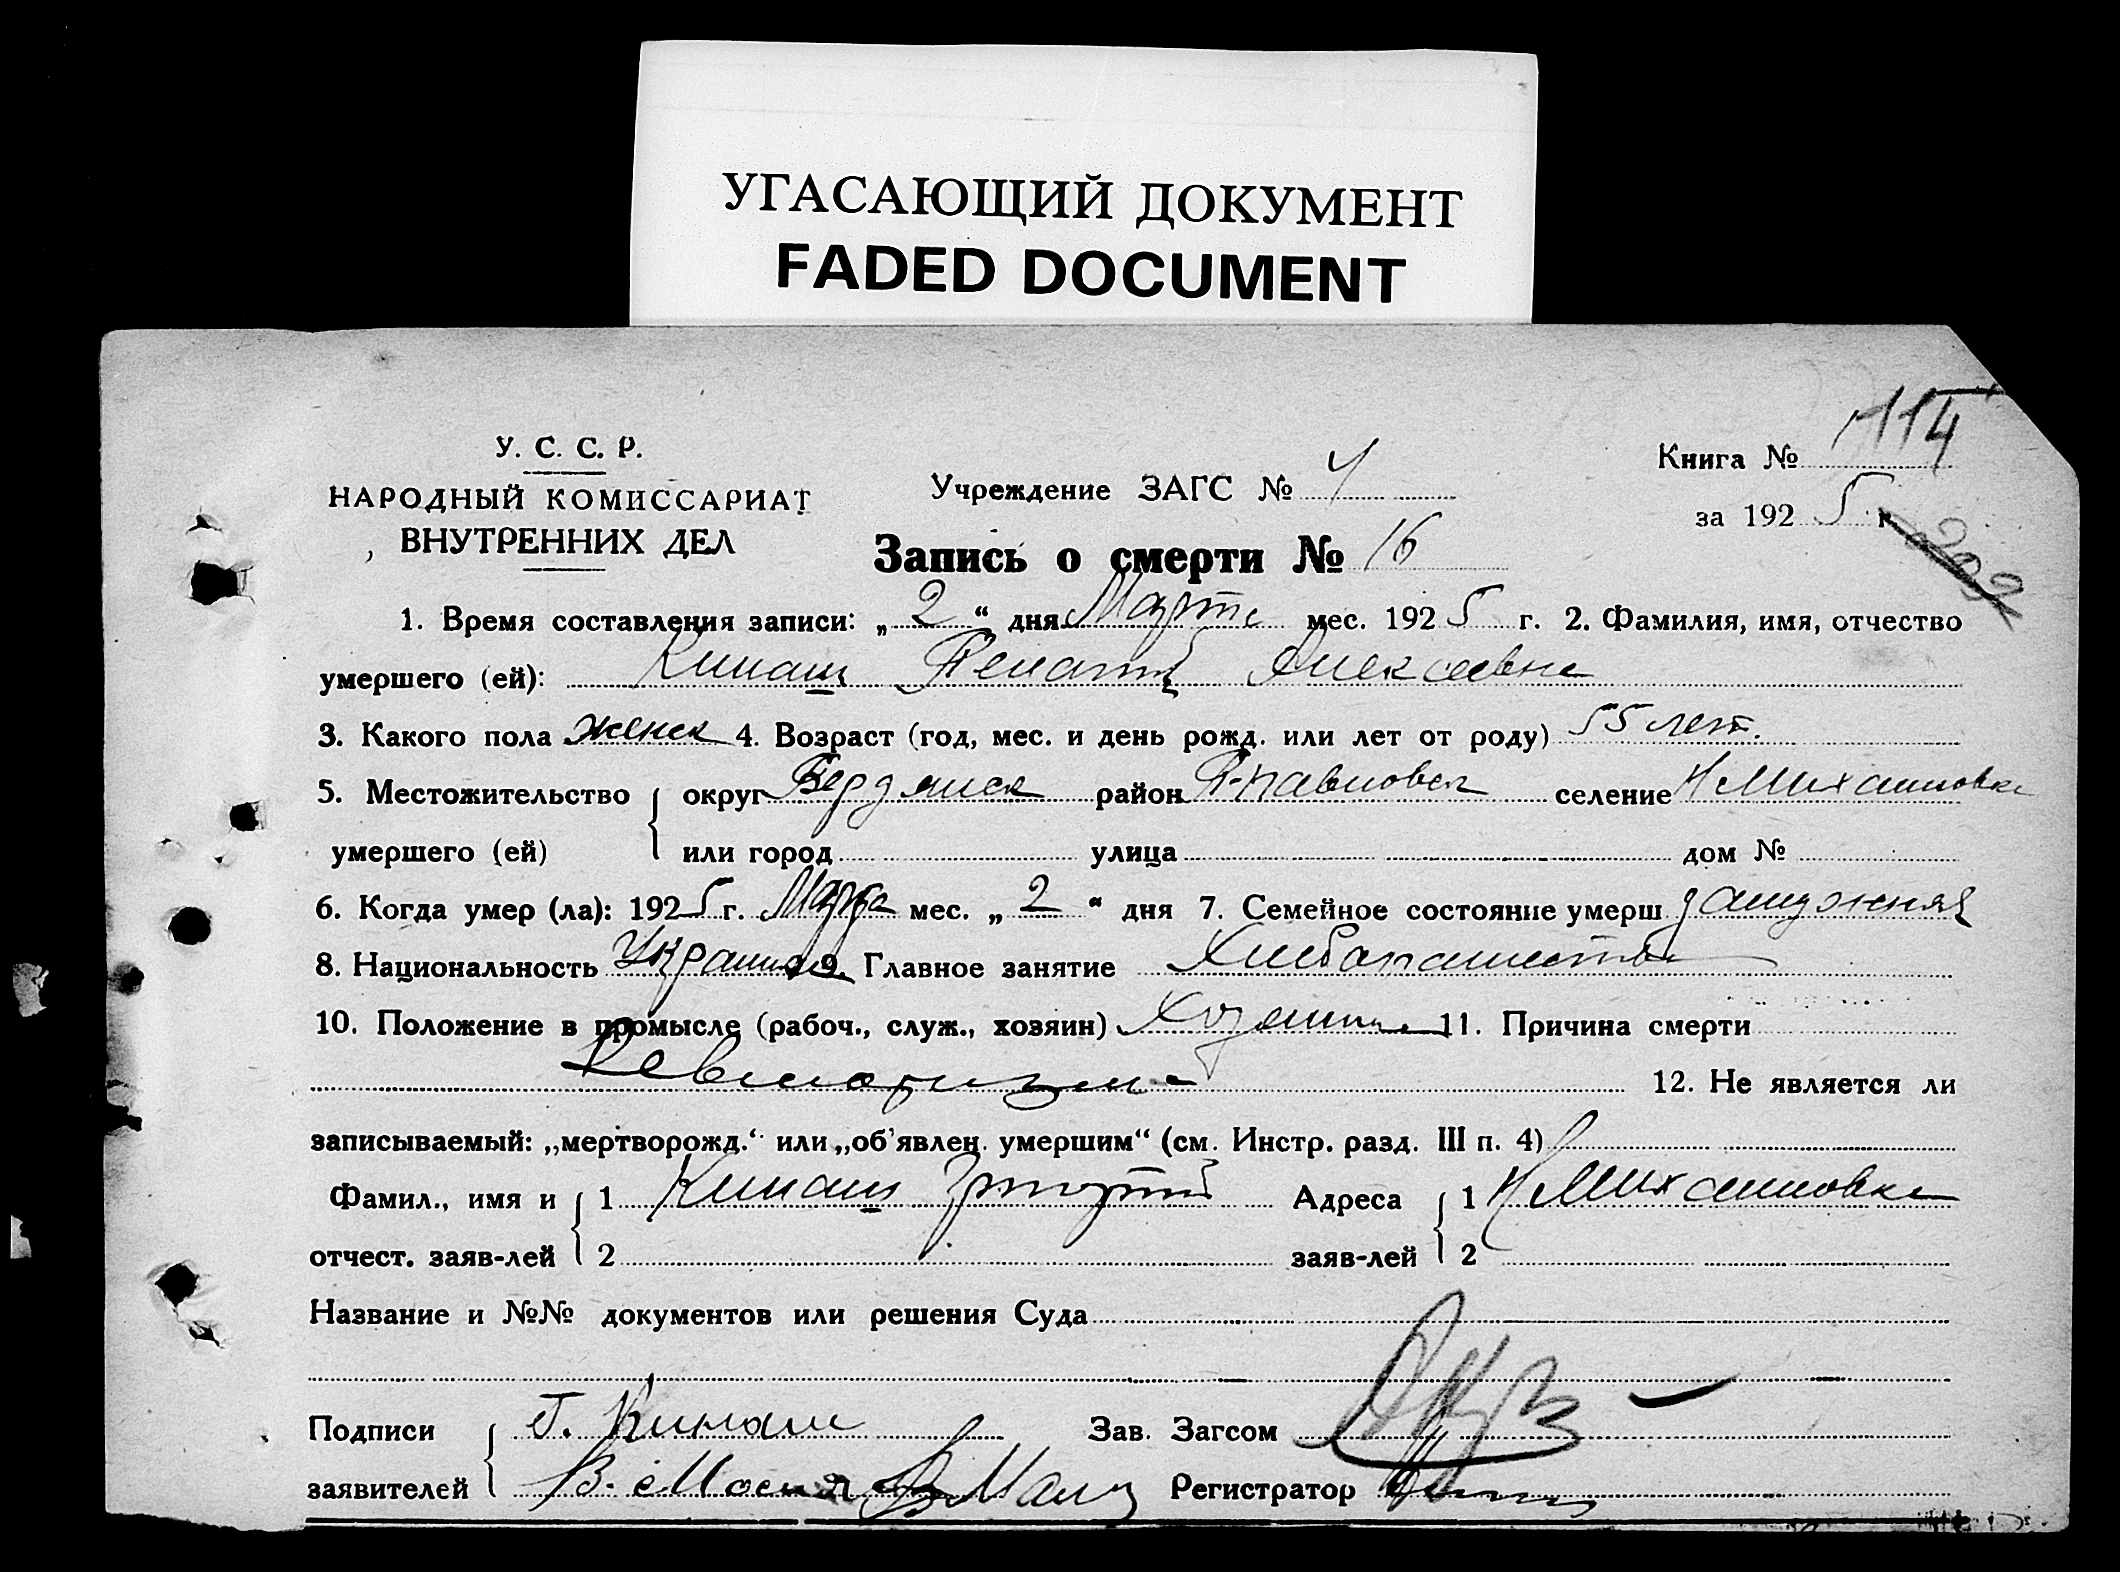 УГАСАЮЩИЙ ДОКУМЕНТ
FADED DOCUMENT
У. С. С. Р.
НАРОДНЫЙ КОМИССАРИАТ
ВНУТРЕННИХ ДЕЛ
Учреждение ЗАГС № 4
Книга № 114
за 1925 г.
202
Запись о смерти № 16
1. Время составления записи: „2“ дня Марта мес. 1925 г. 2. Фамилия, имя, отчество
умершего (ей): Кинаш Алексеевна
3. Какого пола женск 4. Возраст (год, мес. и день рожд. или лет от роду) 55 лет.
5. Местожительство округ Бердянск район селение Н Михайловка
умершего (ей) или город улица дом №
6. Когда умер (ла): 1925 г. Марта мес. „2“ дня 7. Семейное состояние умерш замужняя
8. Национальность 9. Главное занятие Хлебопашество
10. Положение в промысле (рабоч., служ., хозяин) 11. Причина смерти
Ревматизм
12. Не является ли
записываемый: „мертворожд.“ или „об'явлен. умершим“ (см. Инстр. разд. III п. 4)
Фамил., имя и 1 Кинаш Григорий Адреса 1 Н Михайловка
отчест. заяв-лей 2 заяв-лей 2
Название и №№ документов или решения Суда
Подписи Г. Кинаш Зав. Загсом
заявителей Регистратор